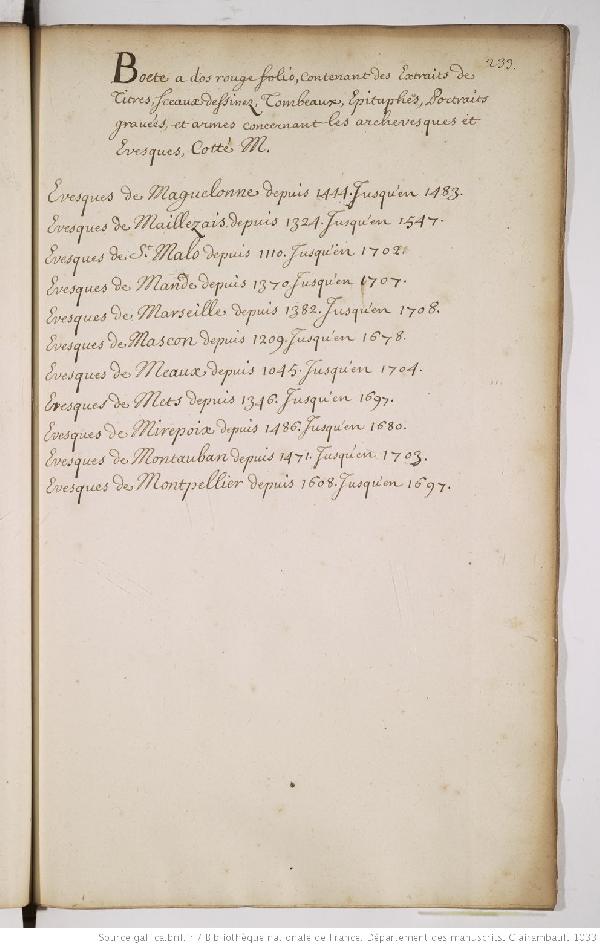 233.
Boete a dos rouge folio, contenant des Extraits de
Titres, sceaux dessinez, Tombeaux, Epitaphes, Portraits
gravées, et armes concernant les archevesques et
Evesques, Cotté M.
Evesques de Maguelonne depuis 1414. Jusqu'en 1483.
Evesques de Maillezais depuis 1324. Jusqu'en 1547.
Evesques de St. Malo depuis 1110. Jusqu'en 1702.
Evesques de Mande depuis 1370 Jusqu'en 1707.
Evesques de Marseille depuis 1382. Jusqu'en 1708.
Evesques de Mascon depuis 1209. Jusqu'en 1678.
Evesques de Meaux depuis 1045. Jusqu'en 1704.
Evesques de Mets depuis 1346. Jusqu'en 1697.
Evesques de Mirepoix depuis 1486. Jusqu'en 1680.
Evesques de Montauban depuis 1471. Jusqu'en 1703.
Evesques de Montpellier depuis 1608. Jusqu'en 1697.
Source gallica.bnf.fr / Bibliothèque nationale de France. Département des manuscrits. Clairambault 1033